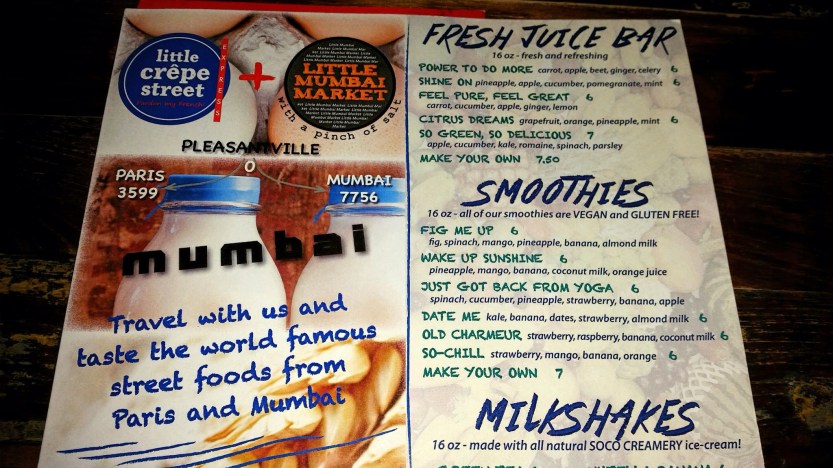 little
crêpe
street
EXPRESS
+
LITTLE
MUMBAI
MARKET
with a pinch of salt
PLEASANTVILLE
0
PARIS
3599
MUMBAI
7756
mumbai
Travel with us and
taste the world famous
street foods from
Paris and Mumbai
FRESH JUICE BAR
16 oz - fresh and refreshing
POWER TO DO MORE carrot, apple, beet, ginger, celery 6
SHINE ON pineapple, apple, cucumber, pomegranate, mint 6
FEEL PURE, FEEL GREAT 6
carrot, cucumber, apple, ginger, lemon
CITRUS DREAMS grapefruit, orange, pineapple, mint 6
SO GREEN, SO DELICIOUS 7
apple, cucumber, kale, romaine, spinach, parsley
MAKE YOUR OWN 7.50
SMOOTHIES
16 oz - all of our smoothies are VEGAN and GLUTEN FREE!
FIG ME UP 6
fig, spinach, mango, pineapple, banana, almond milk
WAKE UP SUNSHINE 6
pineapple, mango, banana, coconut milk, orange juice
JUST GOT BACK FROM YOGA 6
spinach, cucumber, pineapple, strawberry, banana, apple
DATE ME kale, banana, dates, strawberry, almond milk 6
OLD CHARMEUR strawberry, raspberry, banana, coconut milk 6
SO-CHILL strawberry, mango, banana, orange 6
MAKE YOUR OWN 7
MILKSHAKES
16 oz - made with all natural SOCO CREAMERY ice-cream!